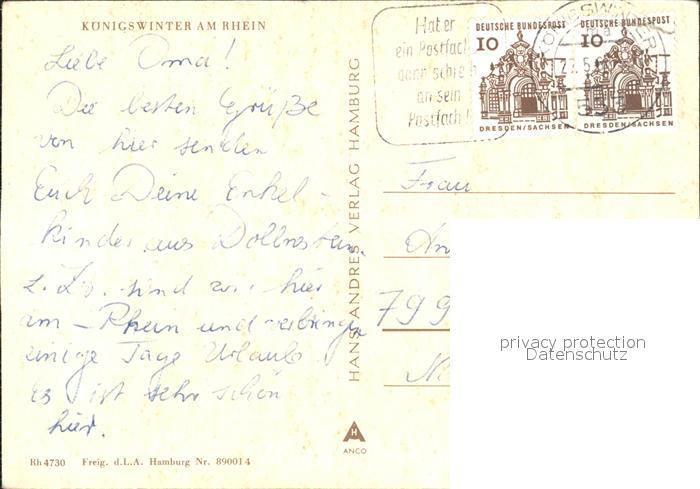 KÖNIGSWINTER AM RHEIN
Liebe Oma!
Die besten Grüße
von hier senden
Euch Deine Enkel-
kinder aus Dollnstein.
z. Zt. sind wir hier
am - Rhein und verbringen
einige Tage Urlaub
Es ist sehr schön
hier.
Rh 4730 Freig. d.L.A. Hamburg Nr. 89001 4
HANS ANDRES VERLAG HAMBURG
ANCO
Hat er
ein Postfach
dann schreib
an sein
Postfach!
DEUTSCHE BUNDESPOST
10
DRESDEN/SACHSEN
DEUTSCHE BUNDESPOST
10
DRESDEN/SACHSEN
KÖNIGSWINTER
Frau
An
799
privacy protection
Datenschutz